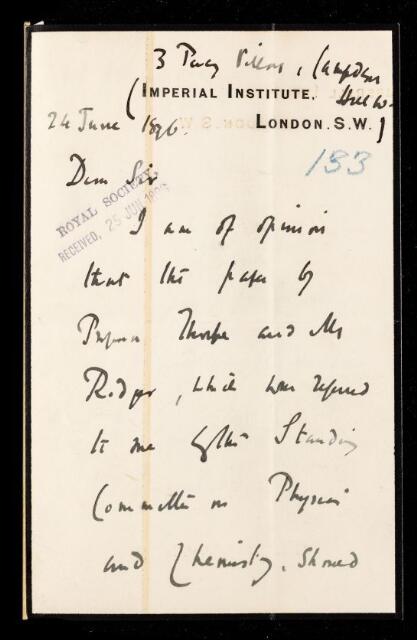 3 Percy Villas, Campden
Hill W.
(IMPERIAL INSTITUTE.
LONDON. S.W.)
24 June 1896.
133
Dear Sir
ROYAL SOCIETY
RECEIVED, 25 JUN 1896
I am of opinion
that the paper by
Professor Thorpe and Mr
Rodger, which was referred
to me by the Standing
Committee on Physics
and Chemistry, should